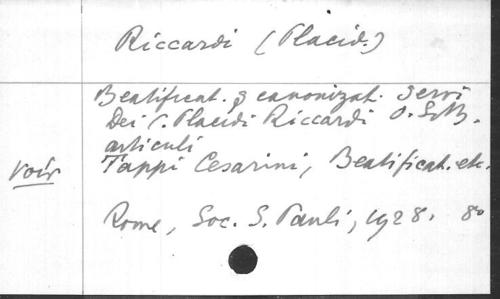 Riccardi (Placid.)
Beatificat. & canonizat. Servi
Dei P. Placidi Riccardi O.S.B.
articuli
voir Tappi Cesarini, Beatificat. etc.
Rome, Soc. S. Pauli, 1928. 8o